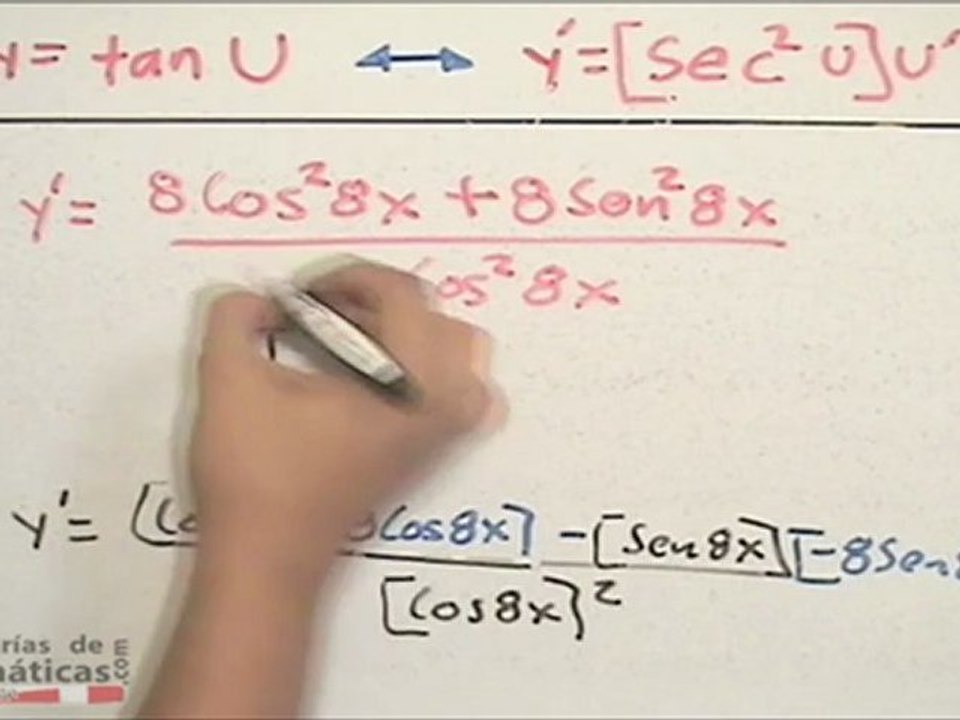 y = tan U ↔ y' = [Sec² U] U'
y' = 8 Cos² 8x + 8 Sen² 8x
Cos² 8x
y' = [Co 8 Cos 8x] - [Sen 8x] [-8 Sen
[Cos 8x]²
rías de
máticas